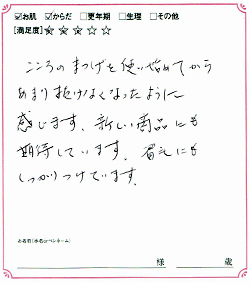 ☑お肌 ☑からだ □更年期 □生理 □その他
[満足度]☆☆☆☆☆
こころのまつげを使い始めてから
あまり抜けなくなったように
感じます。新しい商品にも
期待しています。眉毛にも
しっかりつけています。
お名前(本名orペンネーム)
様 歳